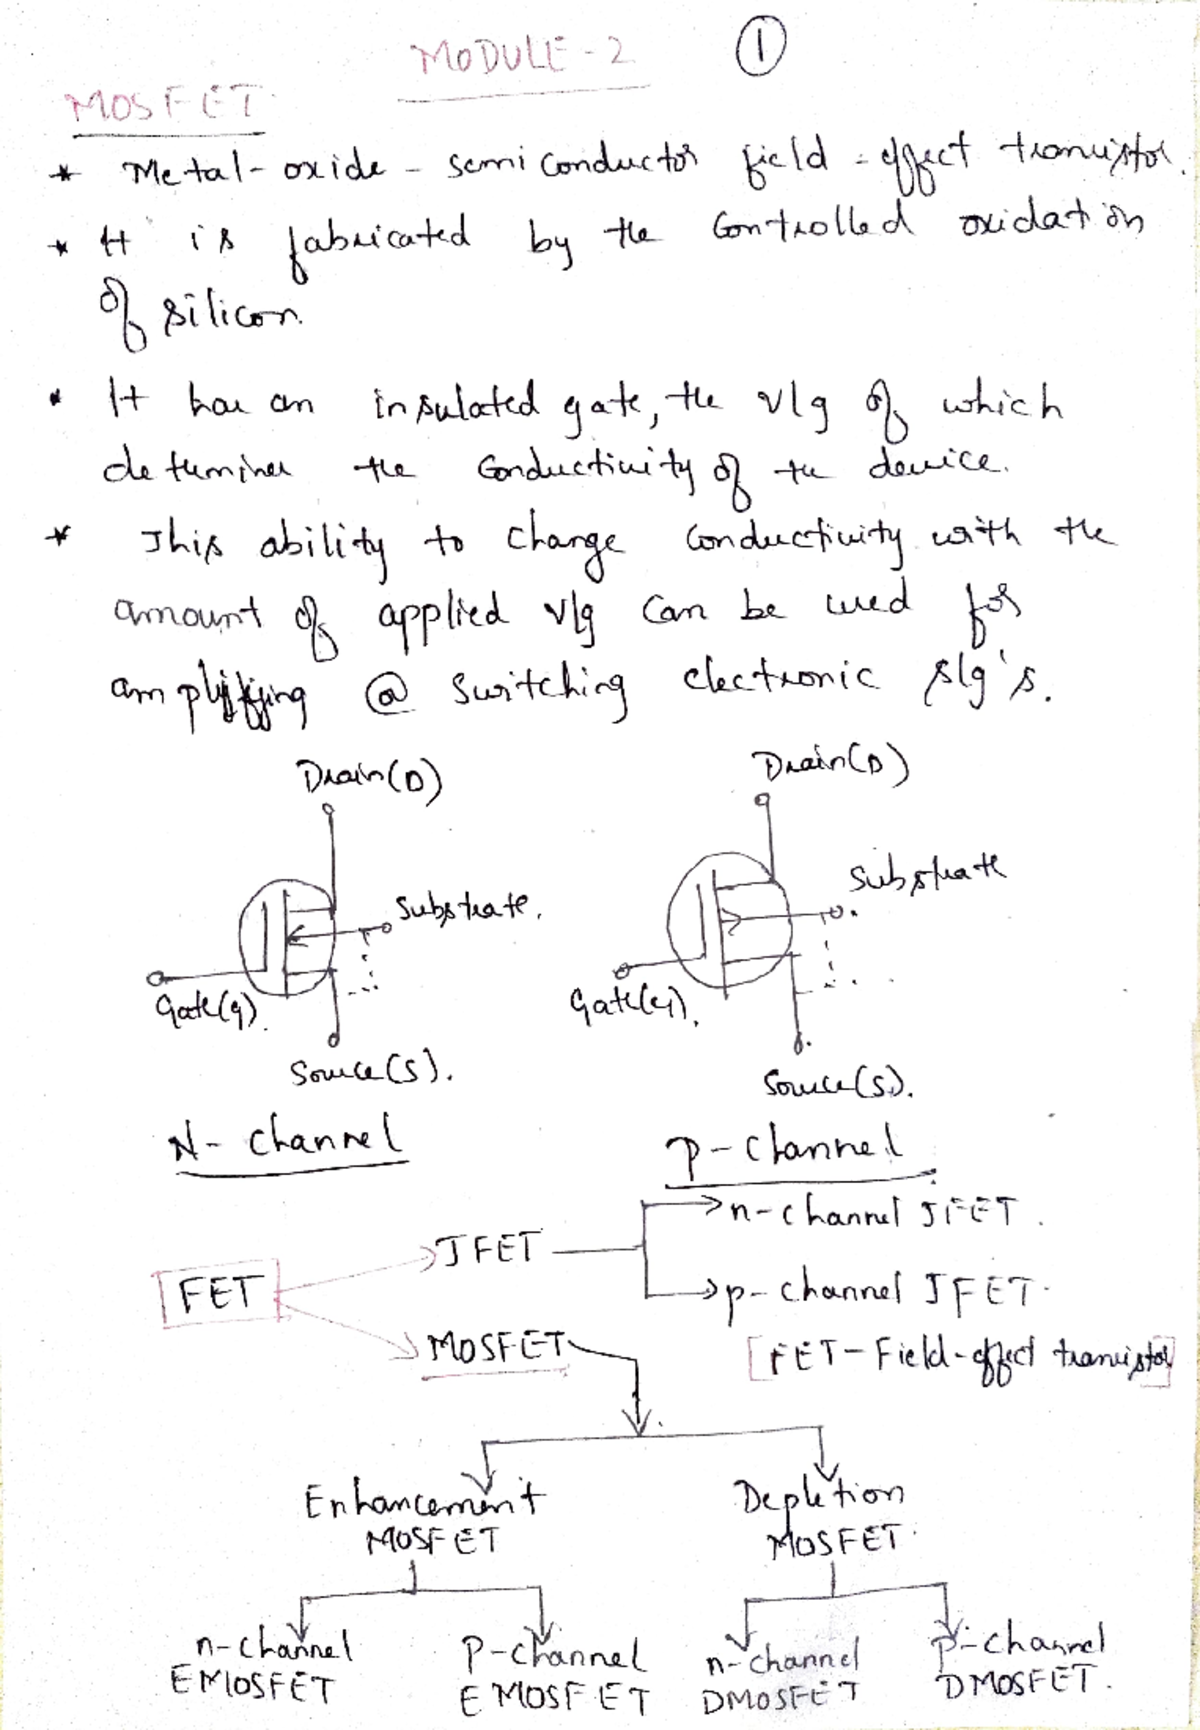 MODULE-2 1
MOSFET
* Metal-oxide-semiconductor field-effect transistor.
* It is fabricated by the controlled oxidation
of silicon.
* It has an insulated gate, the vlg of which
determines the conductivity of the device.
* This ability to change conductivity with the
amount of applied vlg can be used for
amplifying @ switching electronic slg's.
Drain(D) Drain(D)
Substrate. Substrate
Gate(G). Gate(G).
Source(S). Source(S).
N-channel P-channel
n-channel JFET.
JFET
FET
p-channel JFET.
MOSFET [FET-Field-effect transistor]
Enhancement Depletion
MOSFET MOSFET.
n-channel P-channel n-channel p-channel
EMOSFET EMOSFET DMOSFET DMOSFET.